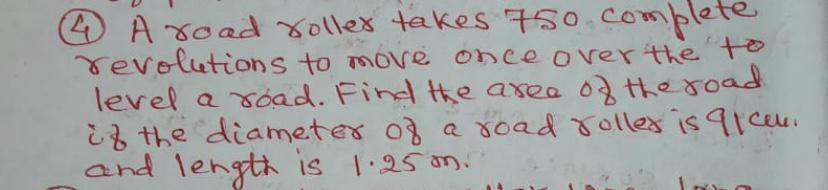 ④ A road roller takes 750 complete
revolutions to move once over the to
level a road. Find the area of the road
if the diameter of a road roller is 91cm.
and length is 1.25 m.